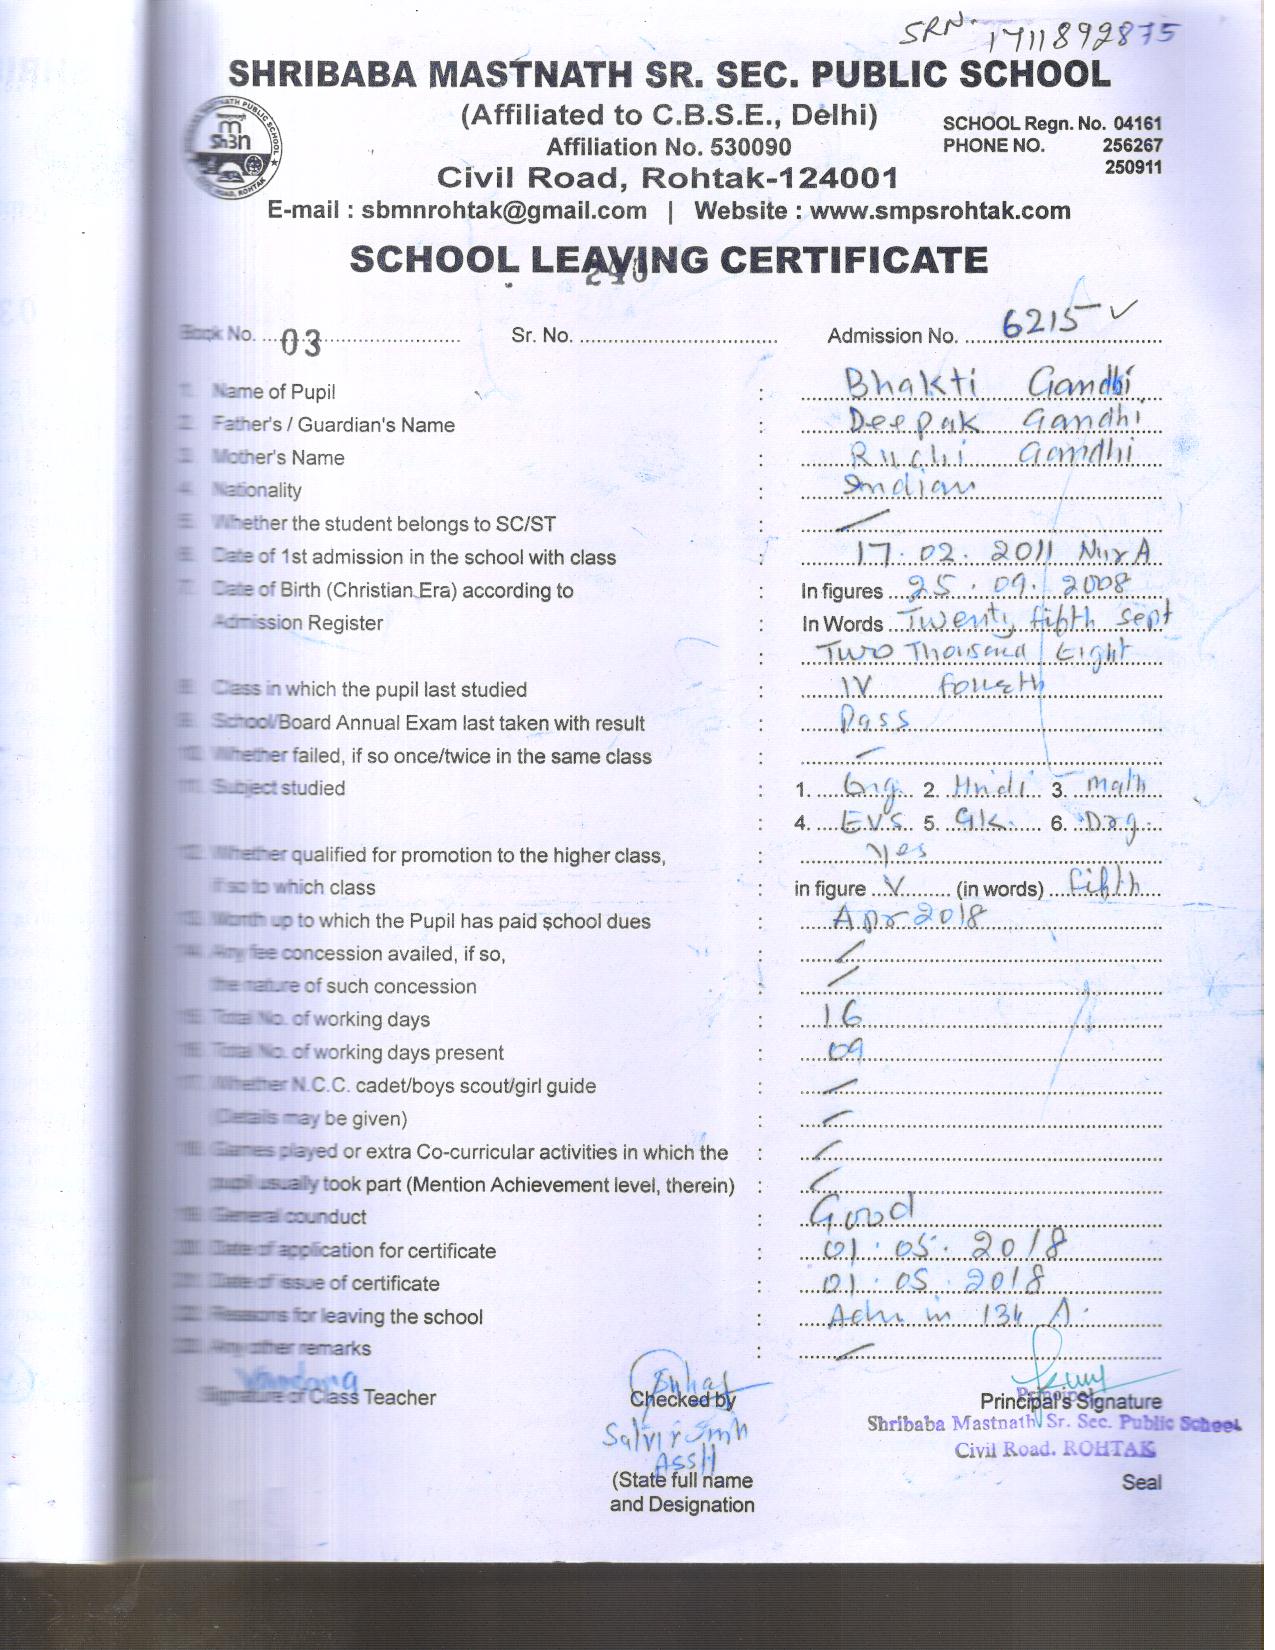 SRN. 1711892875
SHRIBABA MASTNATH SR. SEC. PUBLIC SCHOOL
(Affiliated to C.B.S.E., Delhi)
SCHOOL Regn. No. 04161
Affiliation No. 530090
PHONE NO. 256267
250911
Civil Road, Rohtak-124001
E-mail : sbmnrohtak@gmail.com | Website : www.smpsrohtak.com
SCHOOL LEAVING CERTIFICATE
240
Book No. 03 Sr. No. Admission No. 6215
1. Name of Pupil : Bhakti Gandhi
2. Father's / Guardian's Name : Deepak Gandhi
3. Mother's Name : Ruchi Gandhi
4. Nationality : Indian
5. Whether the student belongs to SC/ST :
6. Date of 1st admission in the school with class : 17.02.2011 Nur A
7. Date of Birth (Christian Era) according to : In figures 25.09.2008
Admission Register : In Words Twenty fifth Sept
: Two Thousand Eight
8. Class in which the pupil last studied : IV Fourth
9. School/Board Annual Exam last taken with result : Pass
10. Whether failed, if so once/twice in the same class :
11. Subject studied : 1. Eng. 2. Hindi 3. Math
: 4. EVS 5. GK 6. Drg.
12. Whether qualified for promotion to the higher class, : Yes
if so to which class : in figure V (in words) Fifth
13. Worth up to which the Pupil has paid school dues : Apr 2018
14. Any fee concession availed, if so, :
the nature of such concession :
15. Total No. of working days : 16
16. Total No. of working days present : 09
17. Whether N.C.C. cadet/boys scout/girl guide :
(Details may be given) :
18. Games played or extra Co-curricular activities in which the :
pupil usually took part (Mention Achievement level, therein) :
19. General counduct : Good
20. Date of application for certificate : 01.05.2018
21. Date of issue of certificate : 01.05.2018
22. Reasons for leaving the school : Adm in 134 A.
23. Any other remarks :
Vandana
Signature of Class Teacher Checked by Principal's Signature
Principal
Shribaba Mastnath Sr. Sec. Public School
Civil Road. ROHTAK
(State full name Seal
and Designation